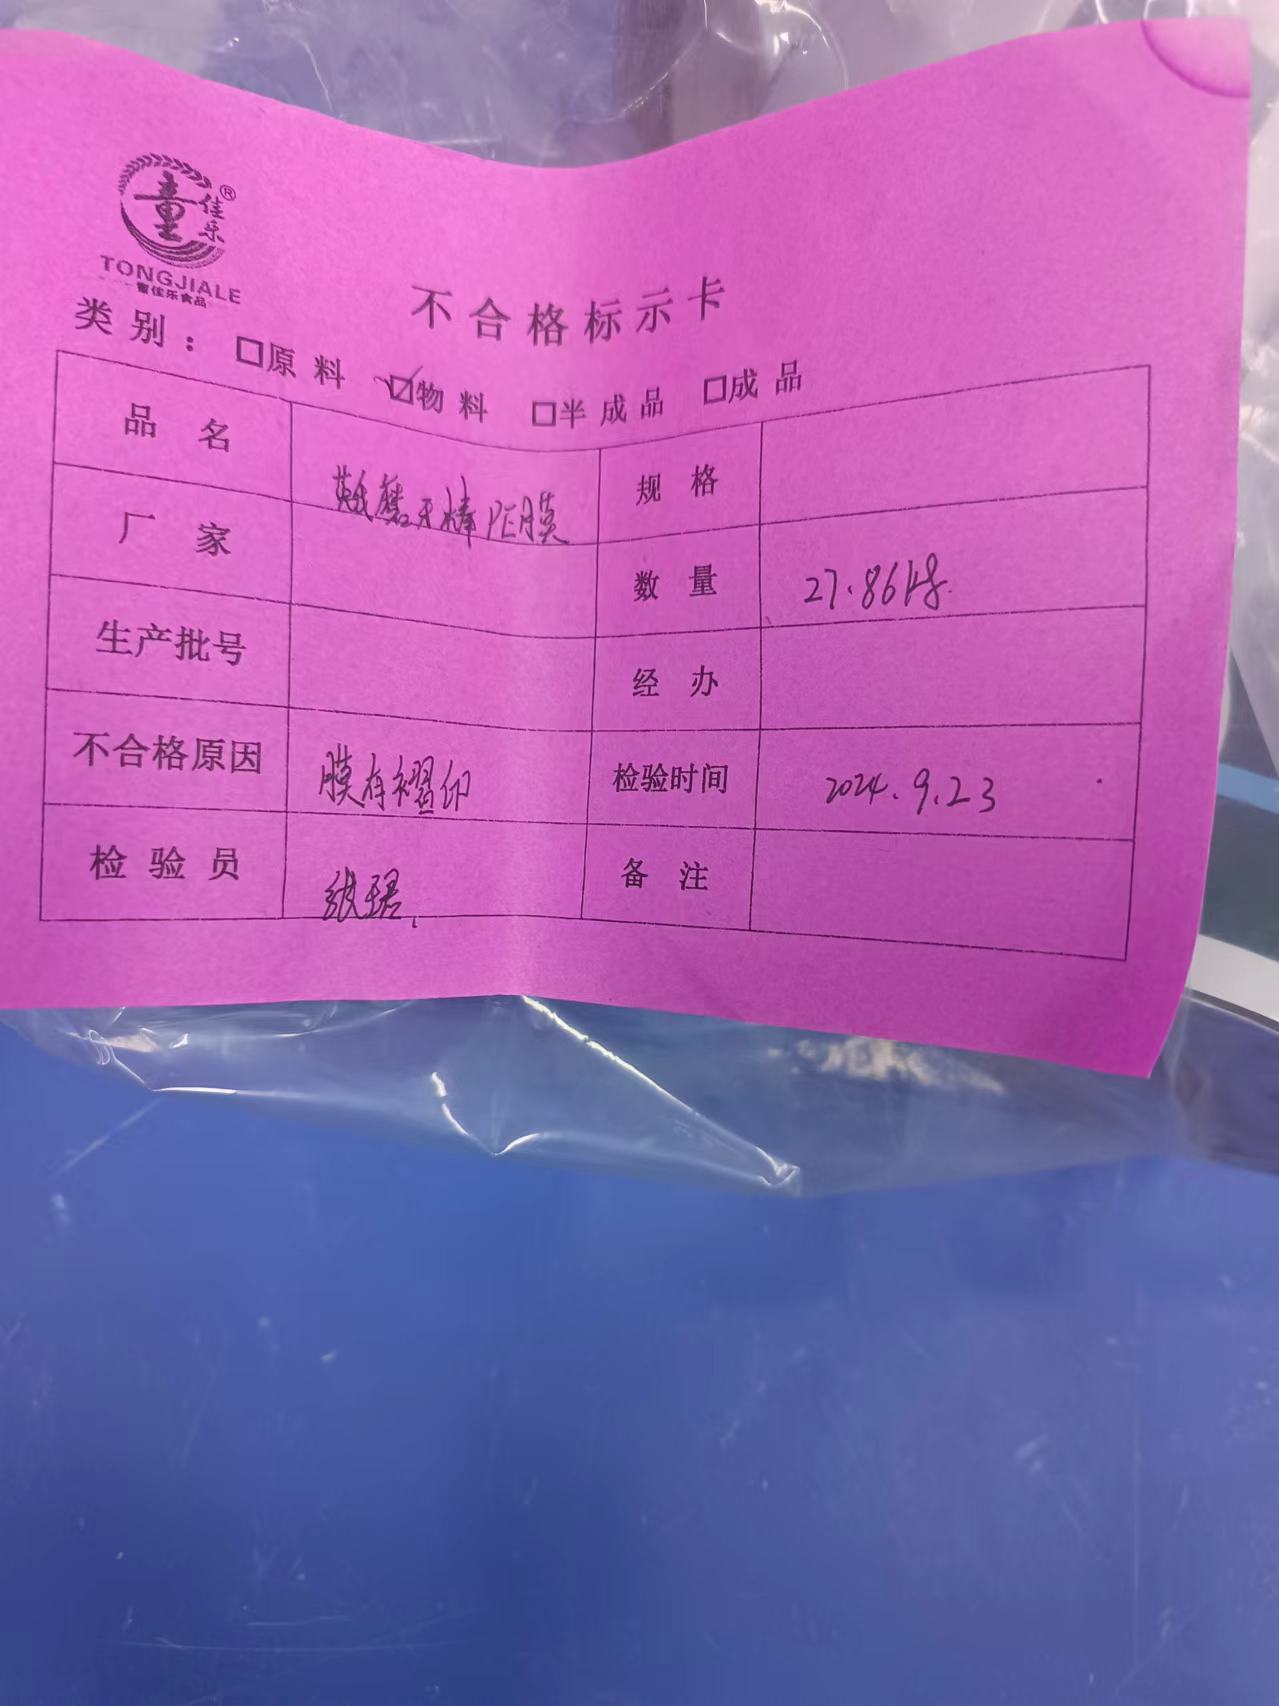 童佳乐®
TONGJIALE
童佳乐食品
不合格标示卡
类别：□原料 ☑物料 □半成品 □成品
品名 磨牙棒PE膜 规格
厂家 数量 27.86kg
生产批号 经办
不合格原因 膜有褶印 检验时间 2024.9.23
检验员 备注